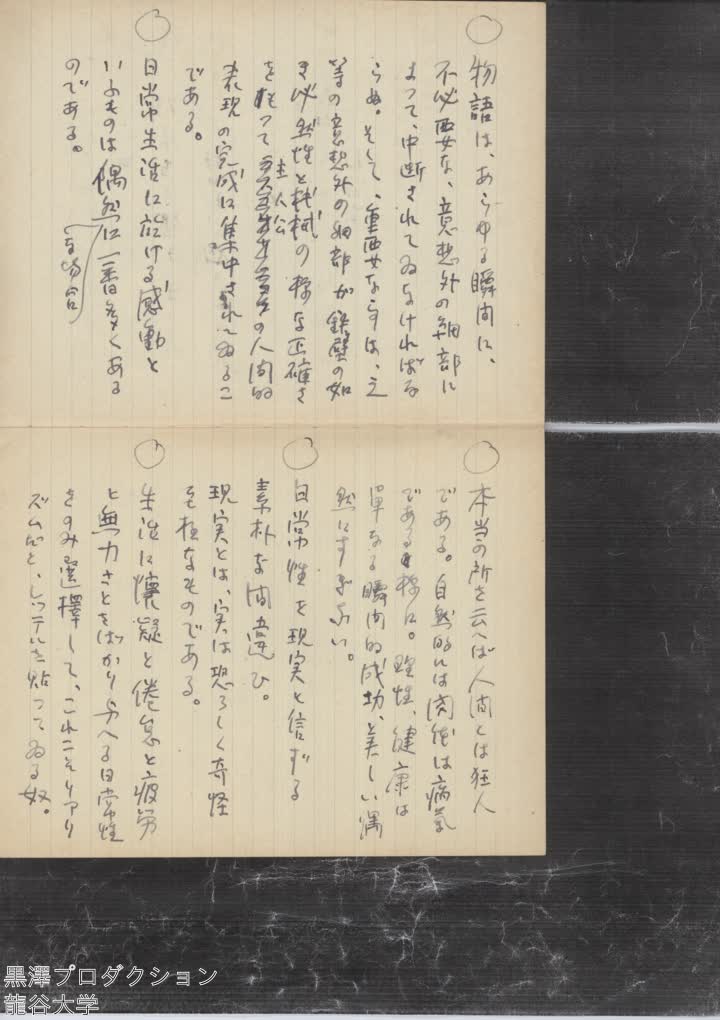 物語は、あらゆる瞬間に、
不必要な、意想外の細部に
よって、中断されてゐなければな
らぬ。そして、重要ならずは、之
等の意想外の細部が鉄壁の如
き必然性と機械の様な正確さ
を持って主人公の人間的
表現の完成に集中されてゐるこ
とである。
日常生活に於ける感動と
いふものは偶然に一番多くある
のである。
な場合
本当の所を云へば人間とは狂人
である。自然的には肉体は病気
である様に。理性、健康は
単なる瞬間的成功、美しい偶
然にすぎない。
日常性を現実と信ずる
素朴な間違ひ。
現実とは、実は恐ろしく奇怪
至極なものである。
生活に懐疑と倦怠と疲労
と無力さとをばかり与へる日常性
をのみ選擇して、これこそリアリ
ズムだと、レッテルを貼ってゐる奴。
黒澤プロダクション
龍谷大学